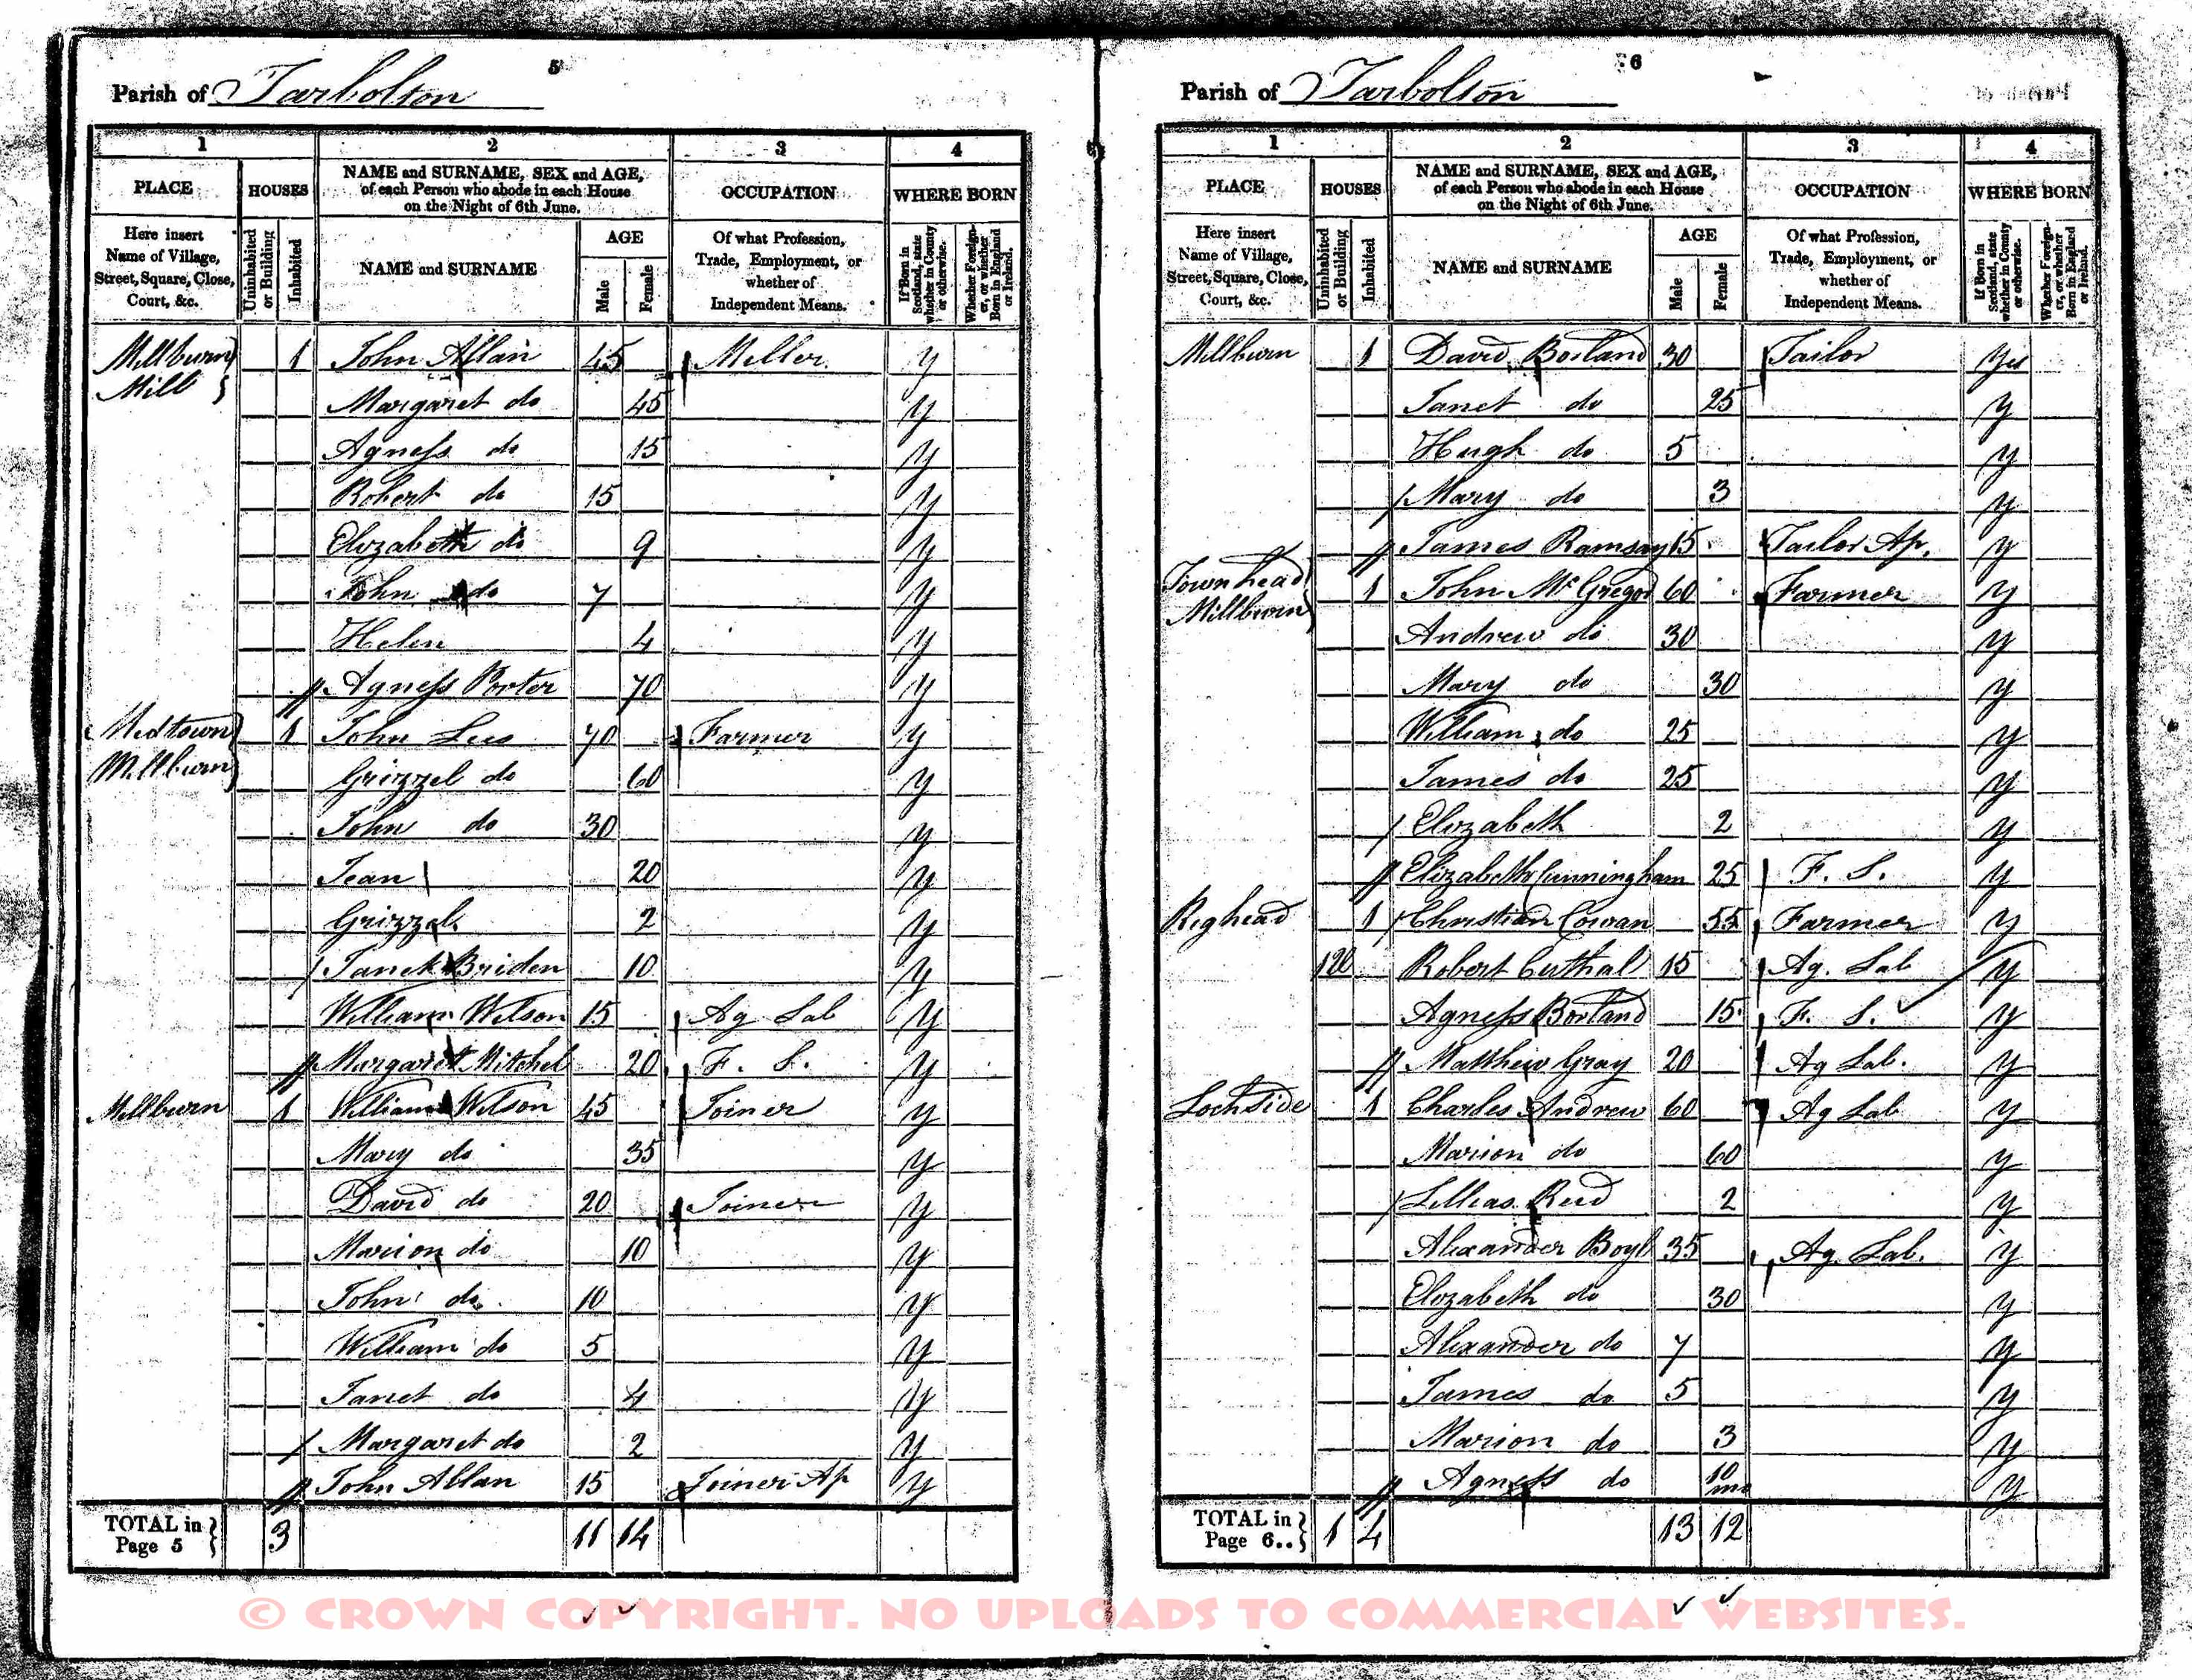 5
Parish of Tarbolton
1 2 3 4
PLACE HOUSES NAME and SURNAME, SEX and AGE, of each Person who abode in each House on the Night of 6th June. OCCUPATION WHERE BORN
Here insert Name of Village, Street, Square, Close, Court, &c. Uninhabited or Building Inhabited NAME and SURNAME AGE Male Female Of what Profession, Trade, Employment, or whether of Independent Means. If Born in Scotland, state whether in County or otherwise. Whether Foreigner, or whether Born in England or Ireland.
Millburn Mill 1 John Allan 45 Miller y
Margaret do 45 y
Agness do 15 y
Robert do 15 y
Elizabeth do 9 y
John do 7 y
Helen 4 y
Agness Porter 70 y
Midtown Millburn 1 John Lees 70 Farmer y
Grizzel do 60 y
John do 30 y
Jean 20 y
Grizzel 2 y
Janet Briden 10 y
William Wilson 15 Ag Lab y
Margaret Mitchel 20 F. S. y
Millburn 1 William Wilson 45 Joiner y
Mary do 35 y
David do 20 Joiner y
Marion do 10 y
John do 10 y
William do 5 y
Janet do 4 y
Margaret do 2 y
John Allan 15 Joiner Ap y
TOTAL in Page 5 3 11 14
6
Parish of Tarbolton
1 2 3 4
PLACE HOUSES NAME and SURNAME, SEX and AGE, of each Person who abode in each House on the Night of 6th June. OCCUPATION WHERE BORN
Here insert Name of Village, Street, Square, Close, Court, &c. Uninhabited or Building Inhabited NAME and SURNAME AGE Male Female Of what Profession, Trade, Employment, or whether of Independent Means. If Born in Scotland, state whether in County or otherwise. Whether Foreigner, or whether Born in England or Ireland.
Millburn 1 David Borland 30 Tailor Yes
Janet do 25 y
Hugh do 5 y
Mary do 3 y
James Ramsay 15 Tailor Ap. y
Townhead Millburn 1 John McGregor 60 Farmer y
Andrew do 30 y
Mary do 30 y
William do 25 y
James do 25 y
Elizabeth 2 y
Elizabeth Cunningham 25 F. S. y
Righead 1 Christian Cowan 55 Farmer y
Robert 15 Ag. Lab y
Agness Borland 15 F. S. y
Matthew Gray 20 Ag Lab. y
Lochside 1 Charles Andrew 60 Ag Lab y
Marion do 60 y
Lillias Reid 2 y
Alexander Boyl 35 Ag. Lab. y
Elizabeth do 30 y
Alexander do 7 y
James do 5 y
Marion do 3 y
Agness do 10 mo y
TOTAL in Page 6.. 1 4 13 12
© CROWN COPYRIGHT. NO UPLOADS TO COMMERCIAL WEBSITES.